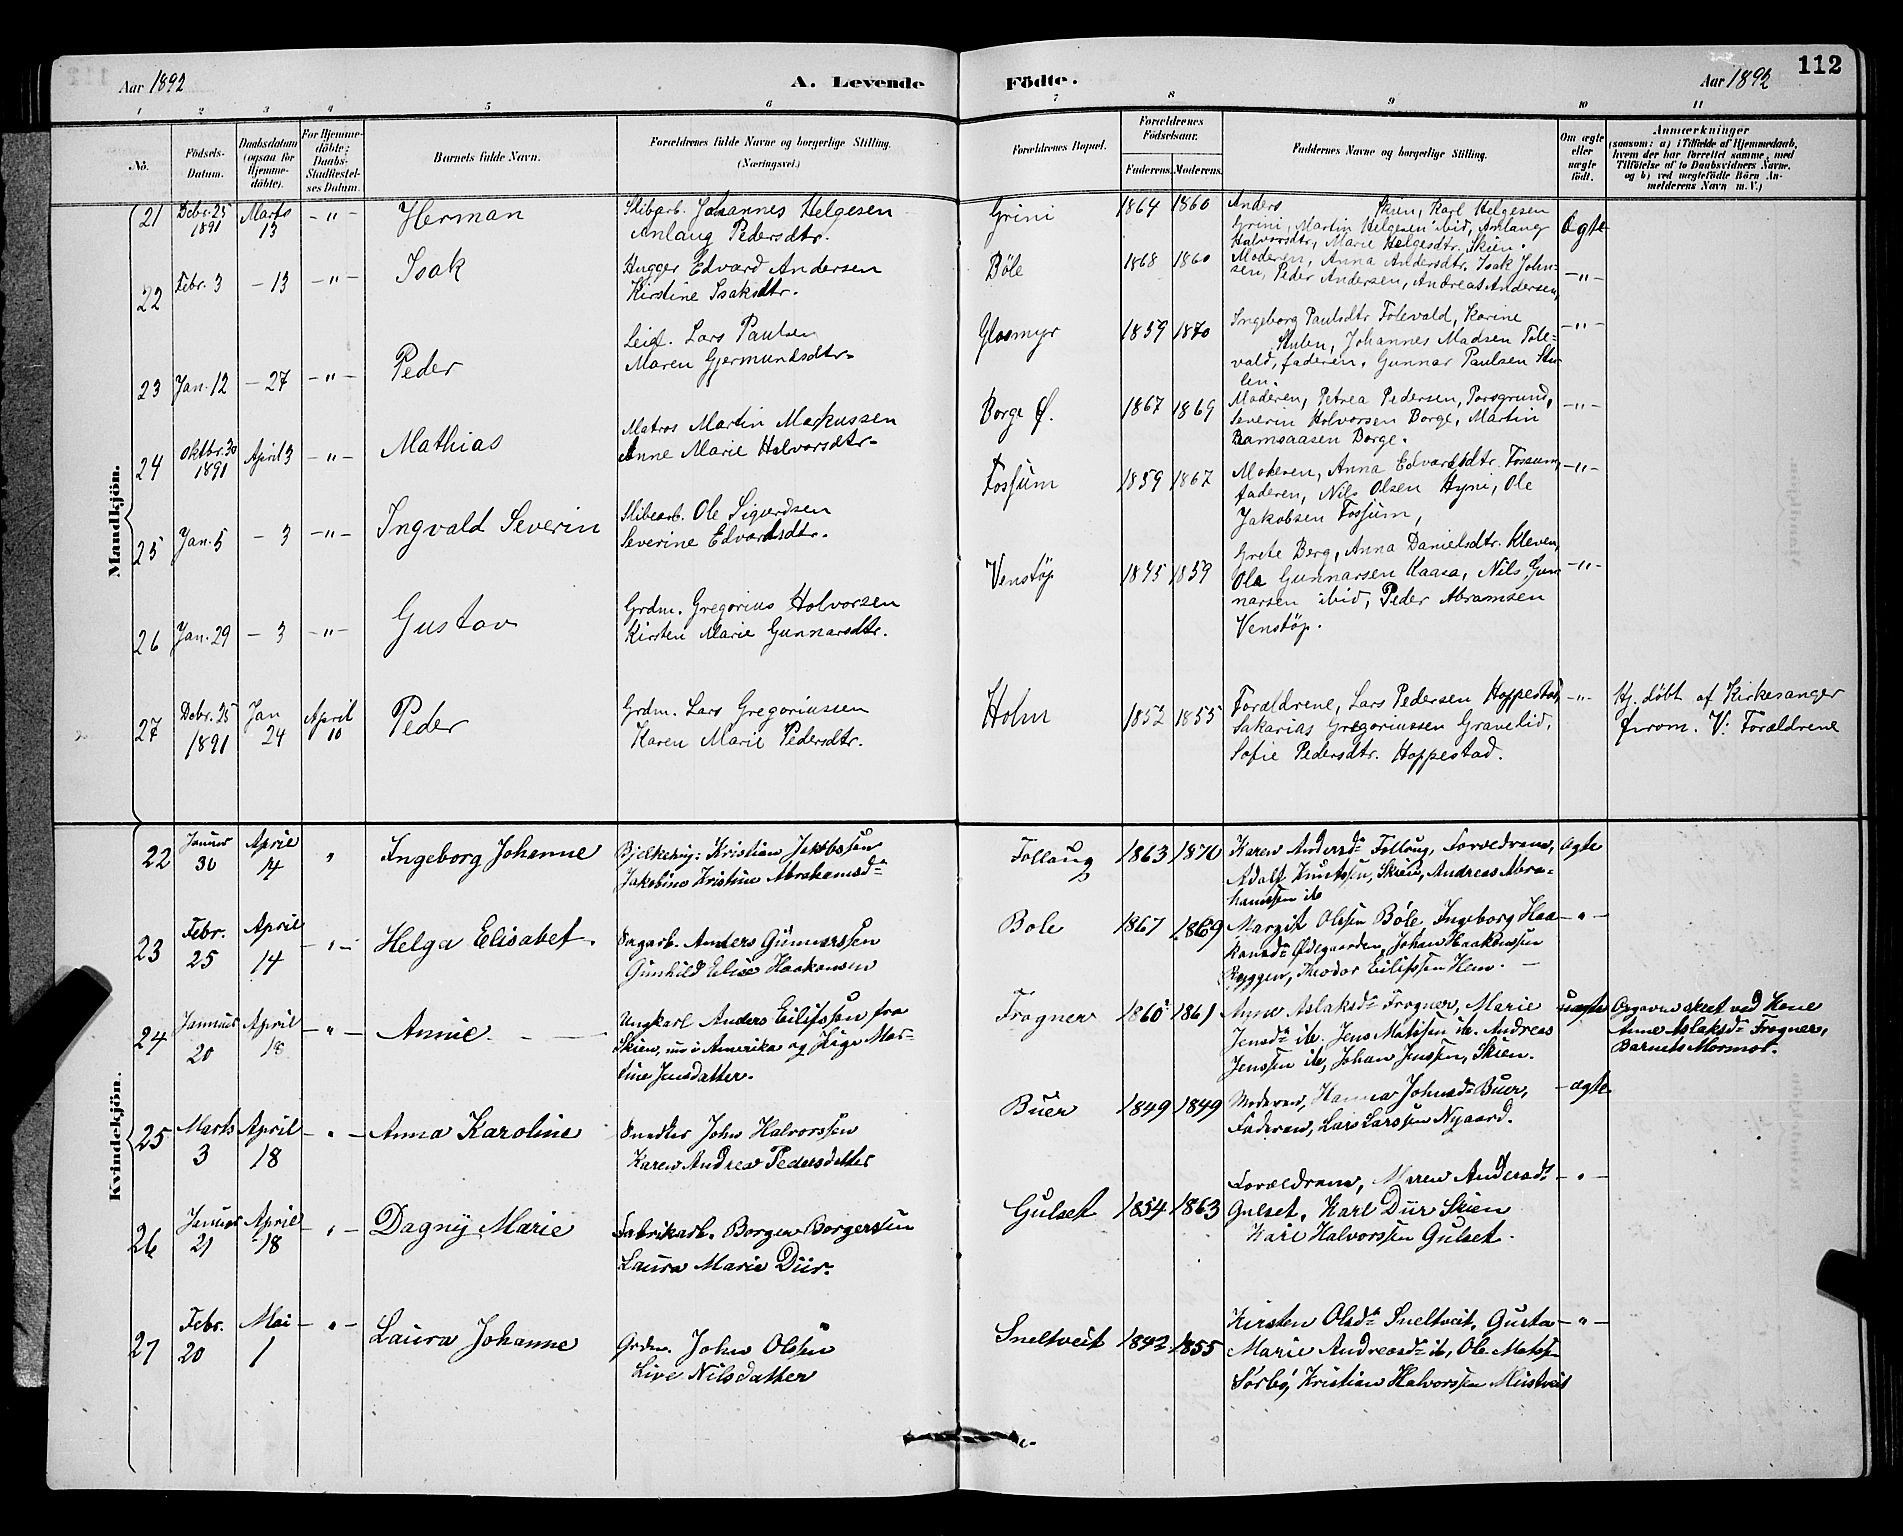 Aar 1892
A. Levende
Födte.
Aar 1892
112
1 2 3 4 5 6 7 8 9 10 11
No.
Födsels-Datum.
Daabsdatum (ogsaa for Hjemme-döbte).
For Hjemme-döbte; Daabs-Stadfæstel-ses Datum.
Barnets fulde Navn.
Forældrenes fulde Navne og borgerlige Stilling. (Næringsvei.)
Forældrenes Bopæl.
Forældrenes Födselsaar.
Faderens. Moderens.
Faddernes Navne og borgerlige Stilling.
Om ægte eller uægte födt.
Anmærkninger
(saasom: a) i Tilfælde af Hjemmedaab, hvem der har forrettet samme, med Tilföielse af to Daabsvidners Navne, og b) ved uægtefödte Börn Anmelderens Navn m. V.)
Mandkjön.
21 Debr. 25 1891 Marts 13 - " - Herman
Slibarb. Johannes Helgesen
Anlaug Pedersdtr.
Grini 1864 1860
Anders Skien, Karl Helgesen
Grini, Martin Helgesen ibid, Anlaug
Halvorsdtr, Marie Helgesdtr. Skien.
Ægte
22 Febr. 3 - 13 - " - Isak
Hugger Edvard Andersen
Kirstine Isaksdtr.
Bøle 1868 1860
Moderen, Anna Andersdtr. Isak John-
sen, Peder Andersen, Andreas Andersen,
- " -
23 Jan. 12 - 27 - " - Peder
Leif. Lars Paulsen
Maren Gjermundsdtr.
Glosmyr 1859 1870
Ingeborg Paulsdtr Folevald, Karine
Stulen, Johannes Madsen Fole-
vald, faderen, Gunnar Paulsen Stu-
len.
- " -
24 Oktbr. 30 1891 April 3 - " - Mathias
Matros Martin Markussen
Anne Marie Halvorsdtr.
Borge Ø. 1867 1869
Moderen, Petrea Pedersen, Porsgrund,
Severin Halvorsen Borge, Martin
Ramsaasen Borge.
- " -
25 Jan. 5 - 3 - " - Ingvald Severin
Slibearb. Ole Sigurdsen
Severine Edvardsdtr.
Fossum 1859 1867
Moderen, Anna Edvardsdtr. Fossum,
faderen, Nils Olsen Hyni, Ole
Jakobsen Fossum,
- " -
26 Jan. 29 - 3 - " - Gustav
Grdm. Gregorius Holvorsen
Kirsten Marie Gunnarsdtr.
Venstøp 1845 1859
Grete Berg, Anna Danielsdtr. Kleven,
Ole Gunnarsen Kaasa, Nils Gun-
narsen ibid, Peder Abramsen
Venstøp.
- " -
27 Debr. 25 1891 Jan 24 April 10 Peder
Grdm. Lars Gregoriussen
Karen Marie Pedersdtr.
Holm 1852 1855
Forældrene, Lars Pedersen Hoppestad,
Sakarias Gregoriussen Gravelid,
Sofie Pedersdtr. Hoppestad.
- " -
Hj. döbt af Kirkesanger
Ørom. V: Forældrene
Kvindekjön.
22 Januar 30 April 14 " Ingeborg Johanne
Kristian Jakobssen
Jakobine Kristine Abrahamsdr
Follaug 1863 1870
Karen Andersdr Follaug, Forældrene,
Adolf Knutssen, Skien, Andreas Abra-
hamssen ib
ægte
23 Febr. 25 April 14 - " - Helga Elisabet.
Sagarb. Anders Gunnarssen
Gunhild Elise Haakonsen
Bøle 1867 1869
Margit Olssen Bøle, Ingeborg Haa-
konsdr Ødegaarden, Johan Haakonssen
Ryggen, Theodor Eilifssen Hem.
- " -
24 Januar 20 April 18 - " - Annie.
Ungkarl Anders Eilifssøn fra
Skien, nu i Amerika og Pige Mar-
tine Jensdatter.
Frogner 1860 1861
Anne Aslaksdr Frogner, Marie
Jensdr ib. Jens Matissen ib. Andreas
Jenssen ib, Johan Jenssen, Skien.
uægte
Opgaven skeet ved Kone
Anne Aslaksdr Frogner,
Barnets Mormor.
25 Marts 3 April 18 - " - Anna Karoline
Snedker John Halvorssen
Karen Andrea Pedersdatter
Buer 1849 1849
Moderen, Hanna Johnsdr Buer,
Faderen, Lars Larssen Nygaard.
ægte
26 Januar 21 April 18 - " - Dagny Marie
Fabrikarb. Borger Borgerssen
Laura Marie Diir.
Gulset 1854 1863
Forældrene, Maren Andersdr
Gulset, Karl Diir Skien
Kari Halvorssen Gulset.
- " -
27 Febr. 20 Mai 1 - " - Laura Johanne
Grdm. John Olssen
Live Nilsdatter
Sneltveit 1842 1855
Kirsten Olsdr Sneltveit, Gusta
Marie Andreasdr ib, Ole Mats-
Sørbø, Kristian Halvorssen Mustveit
- " -